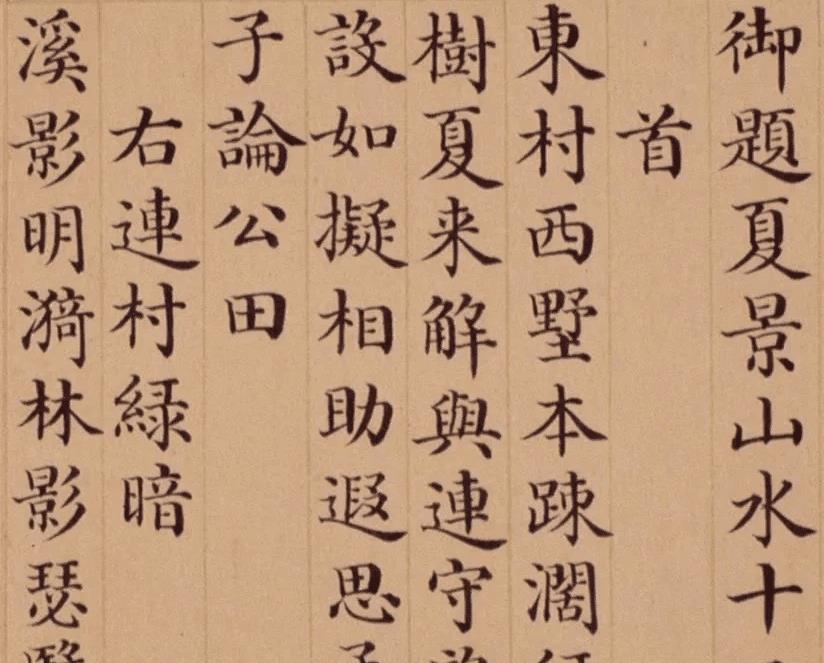 御題夏景山水十
首
東村西墅本踈濶
樹夏来解與連守
設如擬相助遐思
子論公田
右連村緑暗
溪影明漪林影瑟